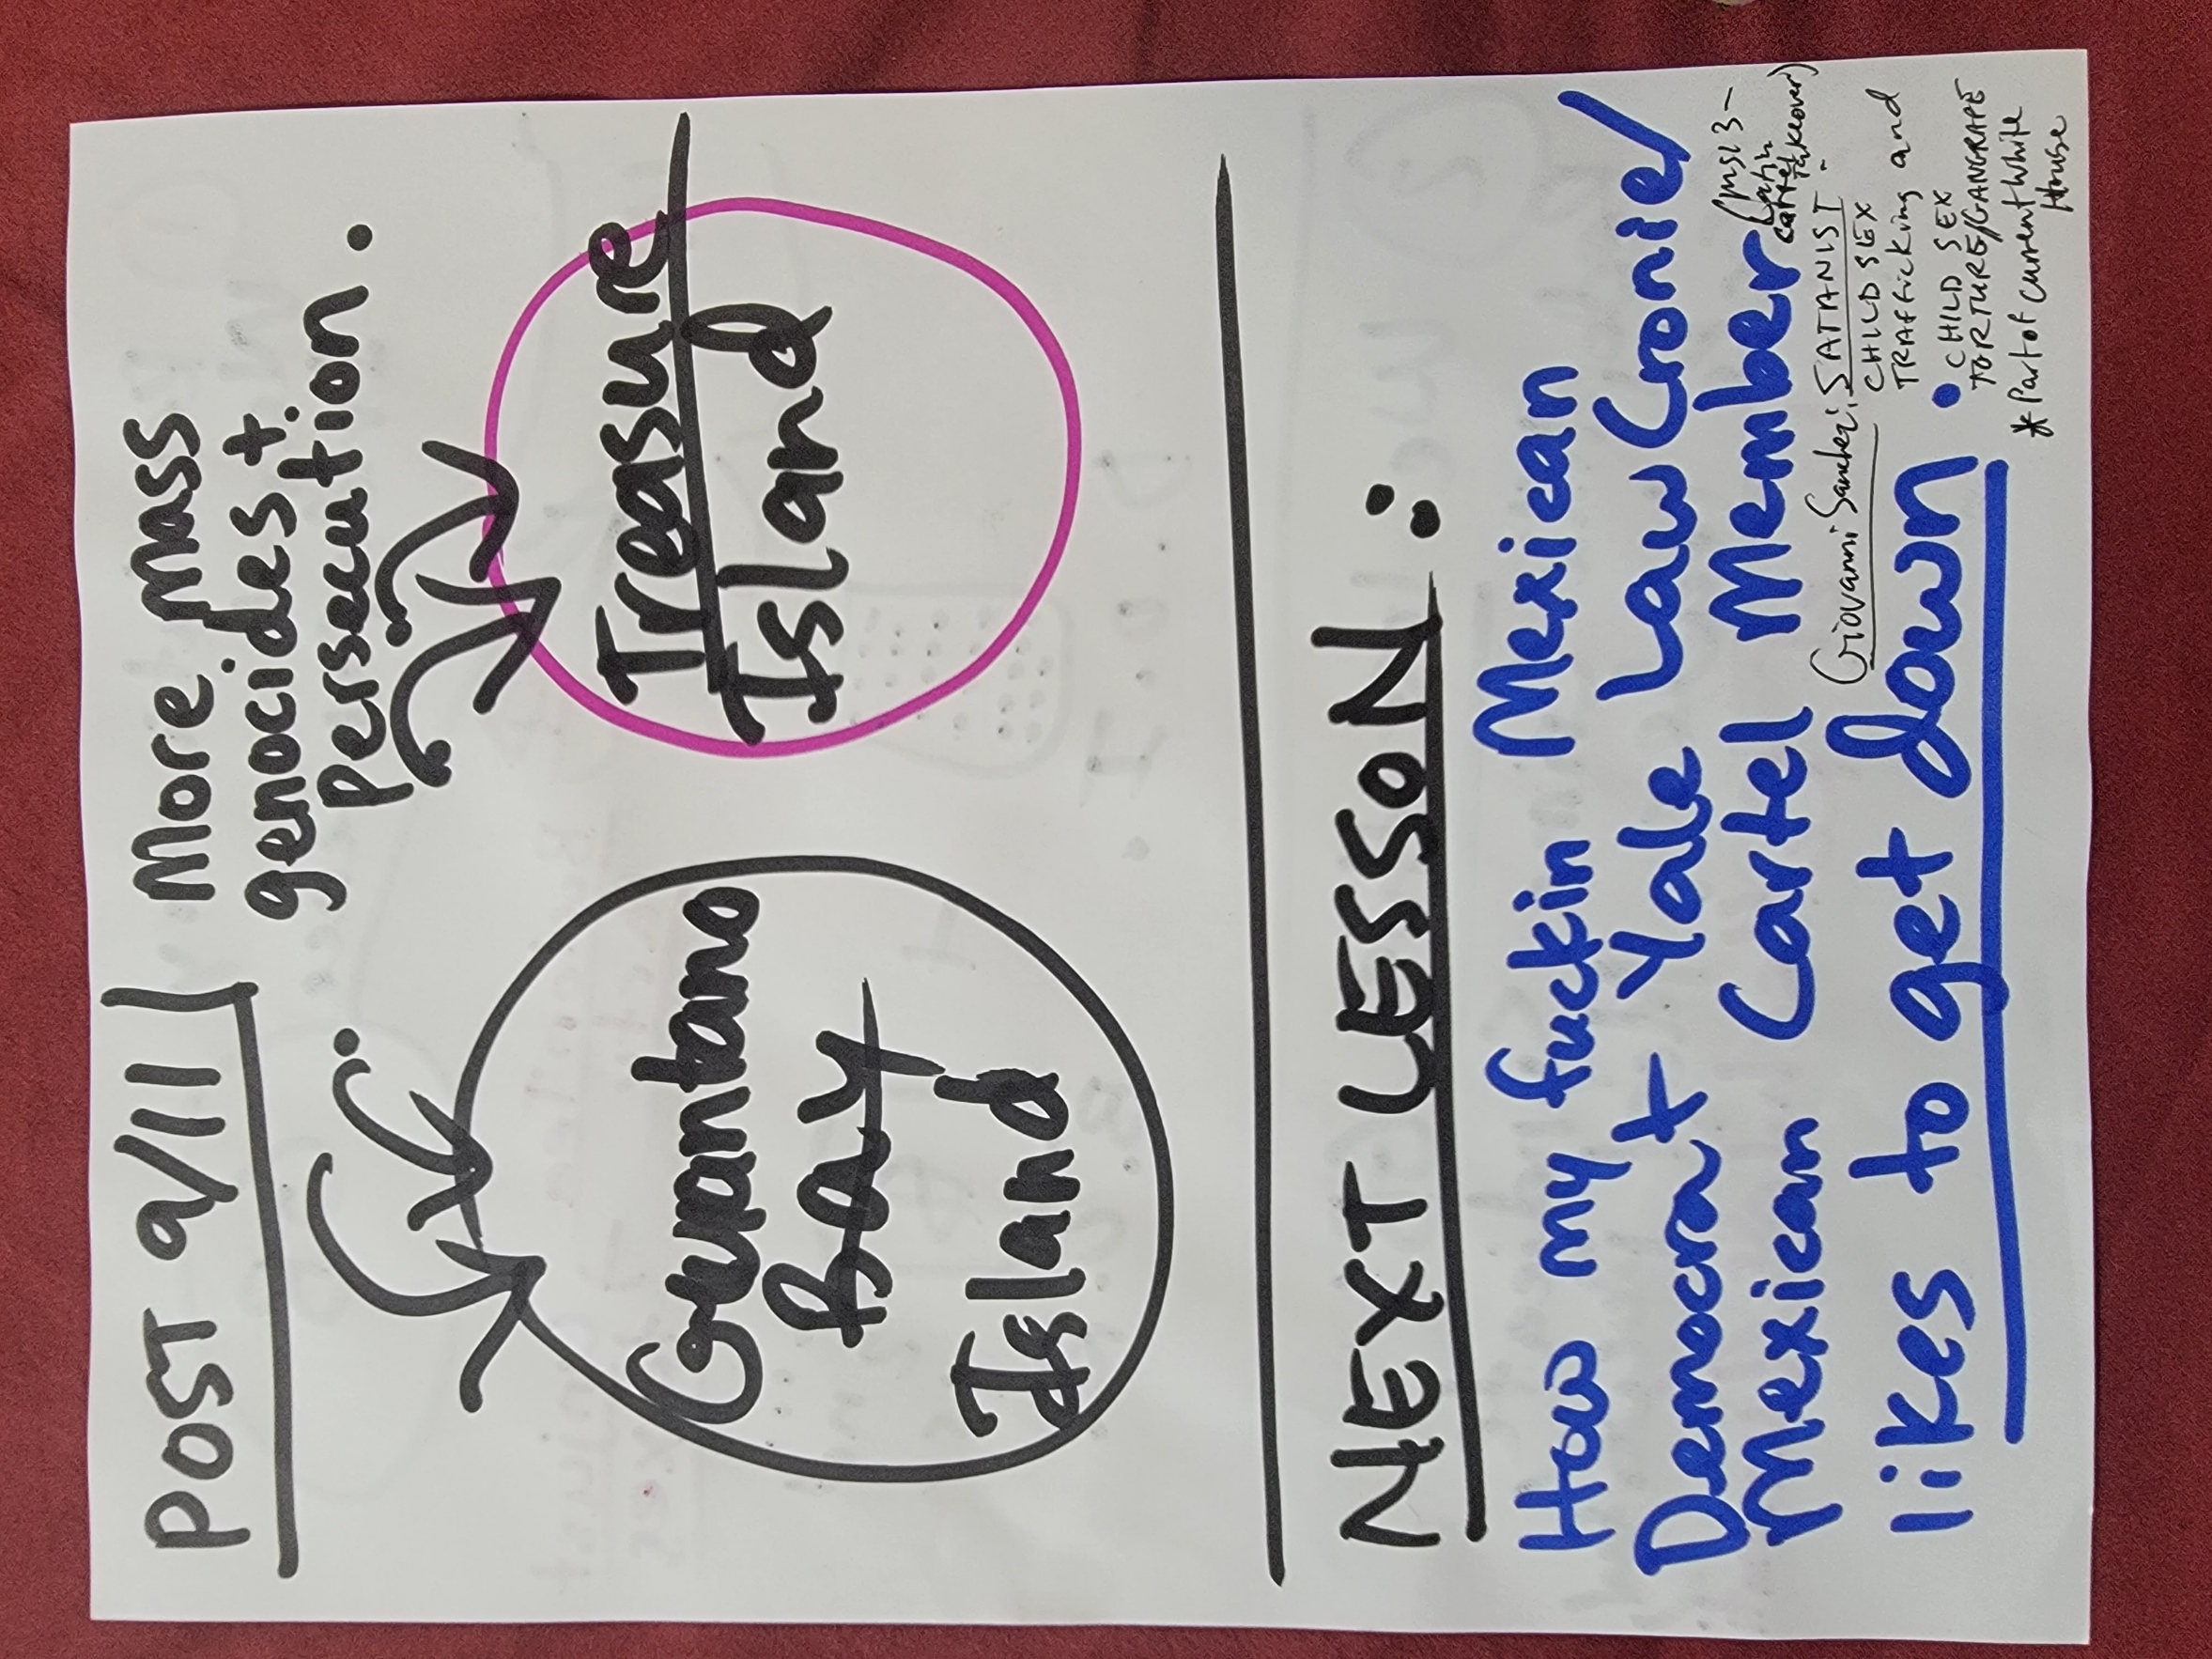 POST 9/11
More mass
genocides +
persecution.
Guantano
Bay
Island
Treasure
Island
NEXT LESSON:
How my fuckin Mexican
Democrat Yale Law Cronie/
Mexican Cartel Member
(MS13-
Latin
cartel
Takeover)
likes to get down.
Giovanni Sanchez: SATANIST
CHILD SEX
TRAfficking and
CHILD SEX
TORTURE/GANGRAPE
* Part of current White
House